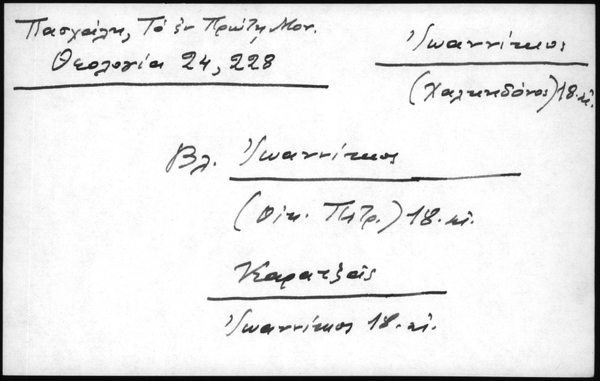 Πασχάλη, Τό ἐν Πρώτῃ Μον.
Θεολογία 24, 228
Ἰωαννίκιος
(Χαλκηδόνος) 18. αἰ.
Βλ. Ἰωαννίκιος
(Οἰκ. Πατρ.) 18. αἰ.
Καρατζᾶς
Ἰωαννίκιος 18. αἰ.